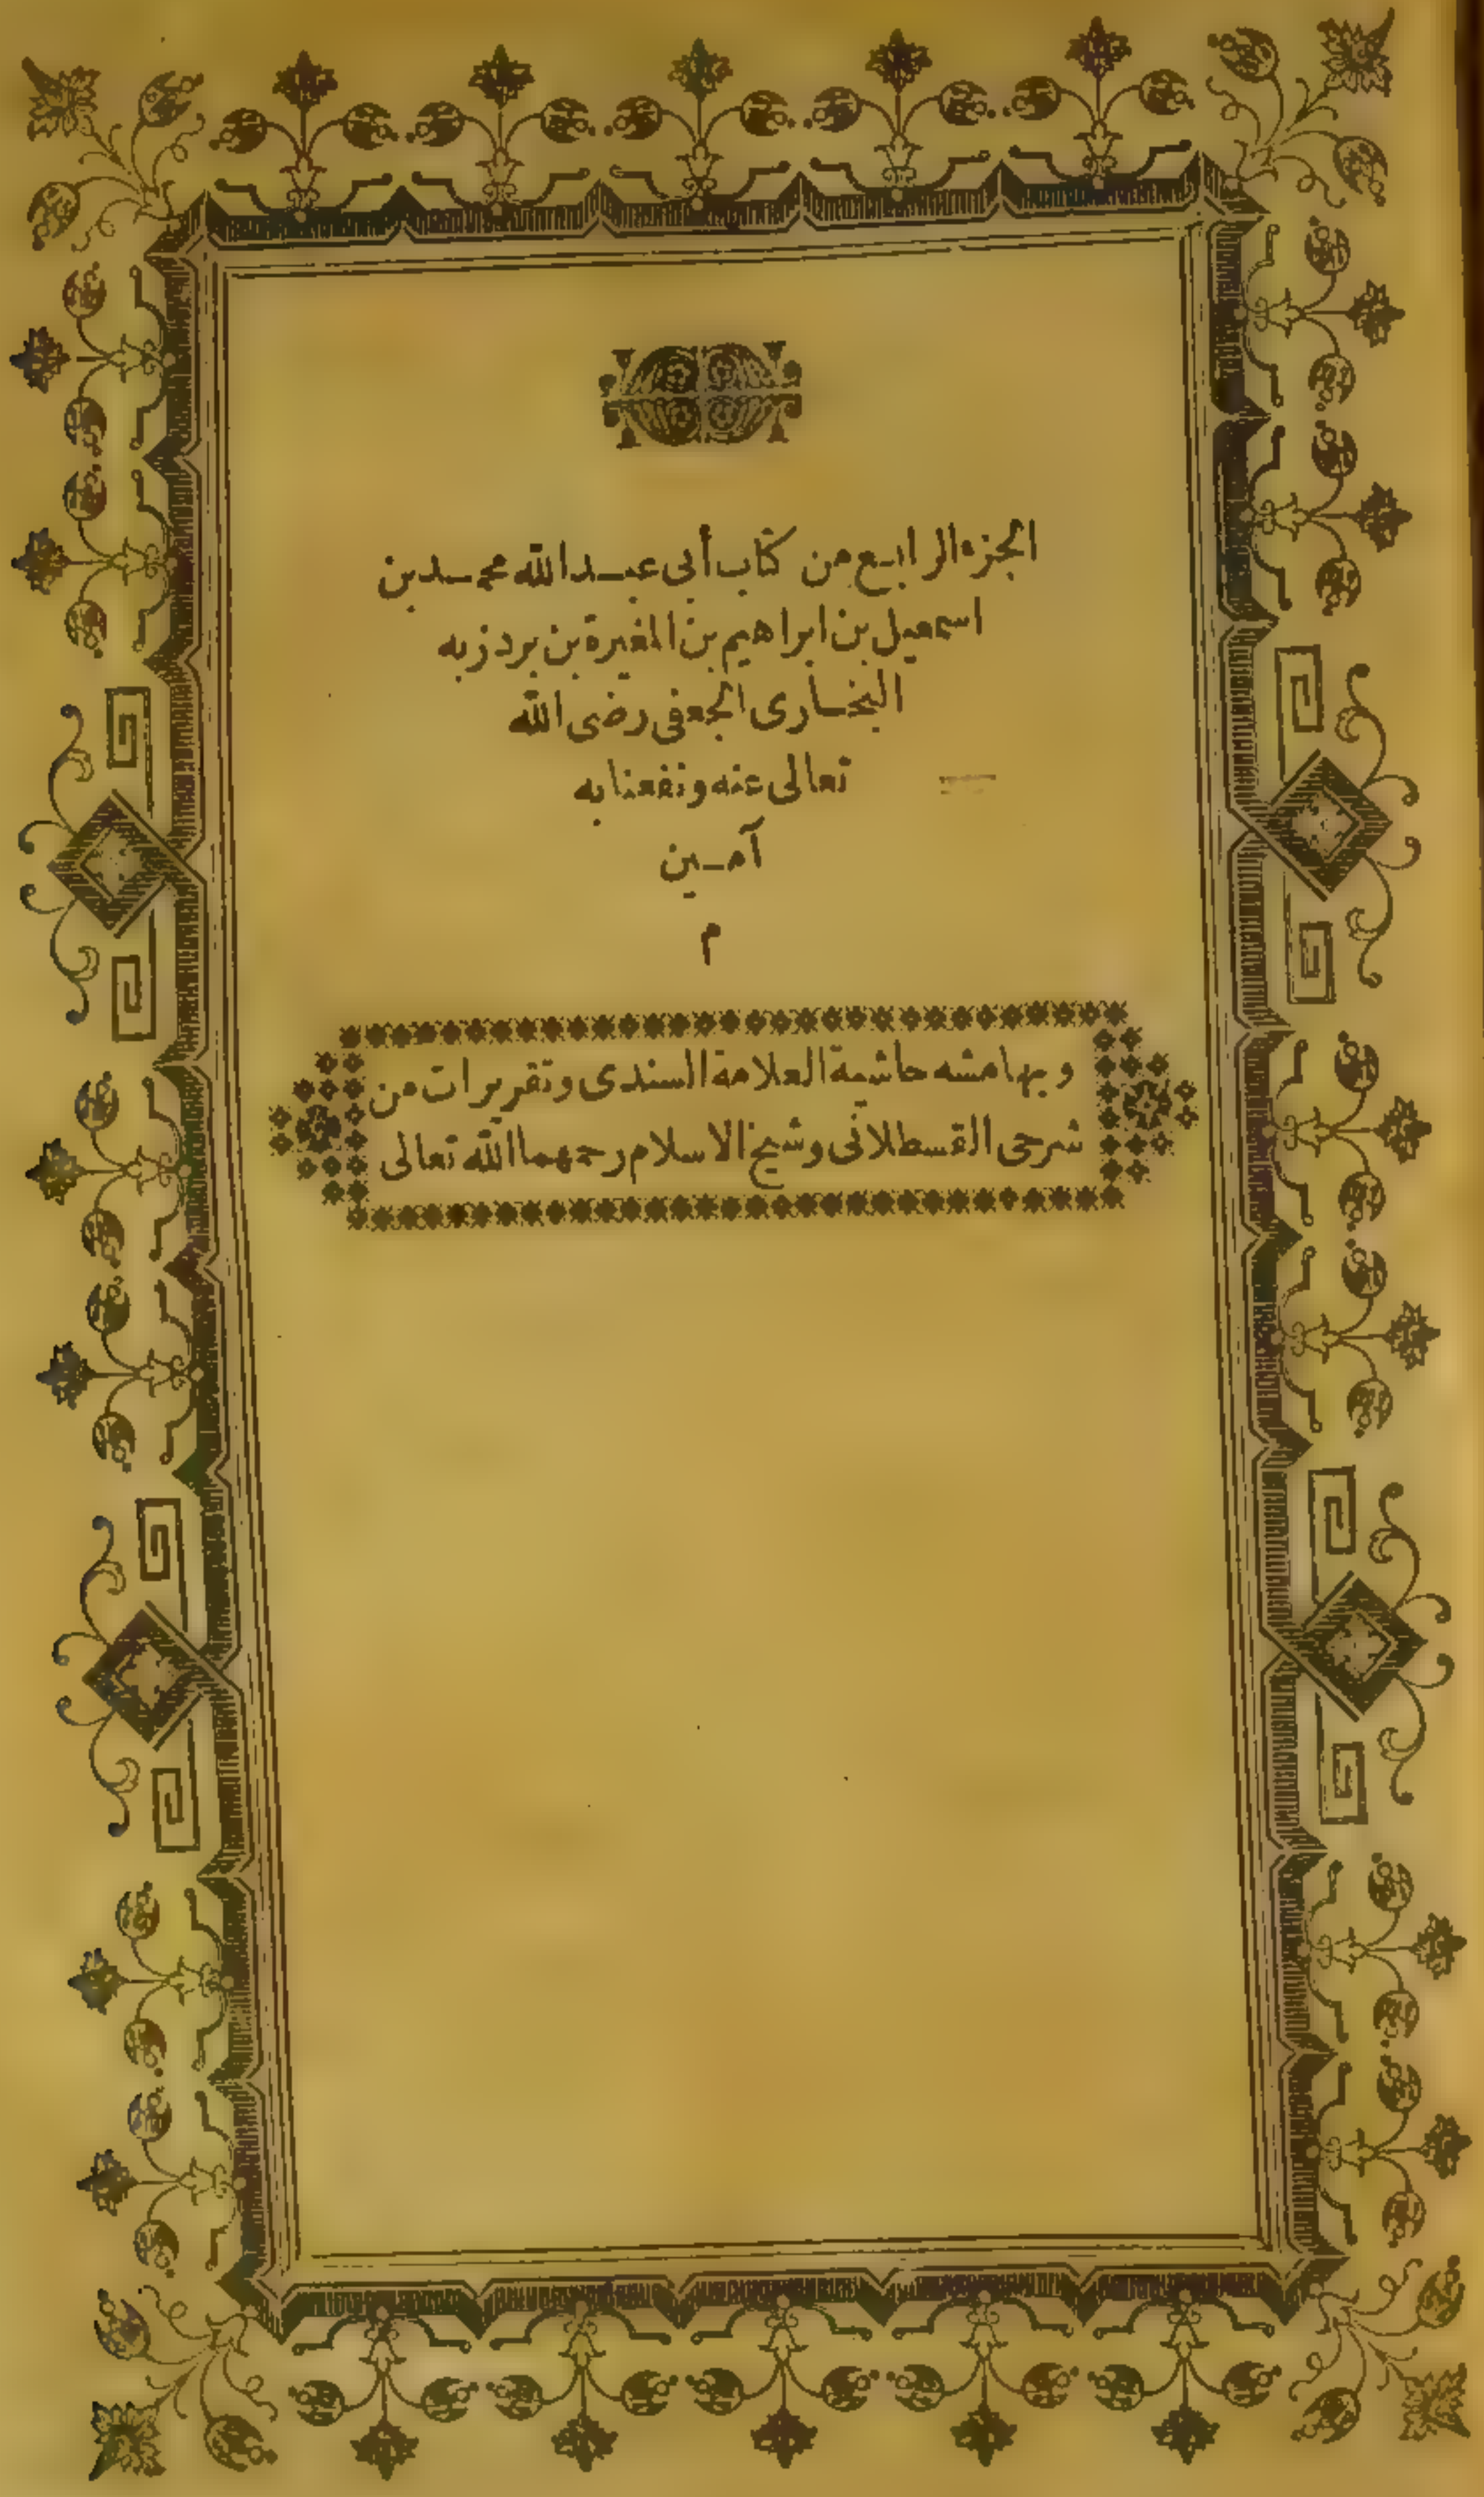 الجزء الرابع من كتاب أبى عبد الله محمد بن
اسمعيل بن ابراهيم بن المغيرة بن بردزبه
البخارى الجعفى رضى الله
تعالى عنه ونفعنا به
آمين
م
وبهامشه حاشية العلامة السندى وتقريرات من
شرحى القسطلانى وشيخ الاسلام رحمهما الله تعالى